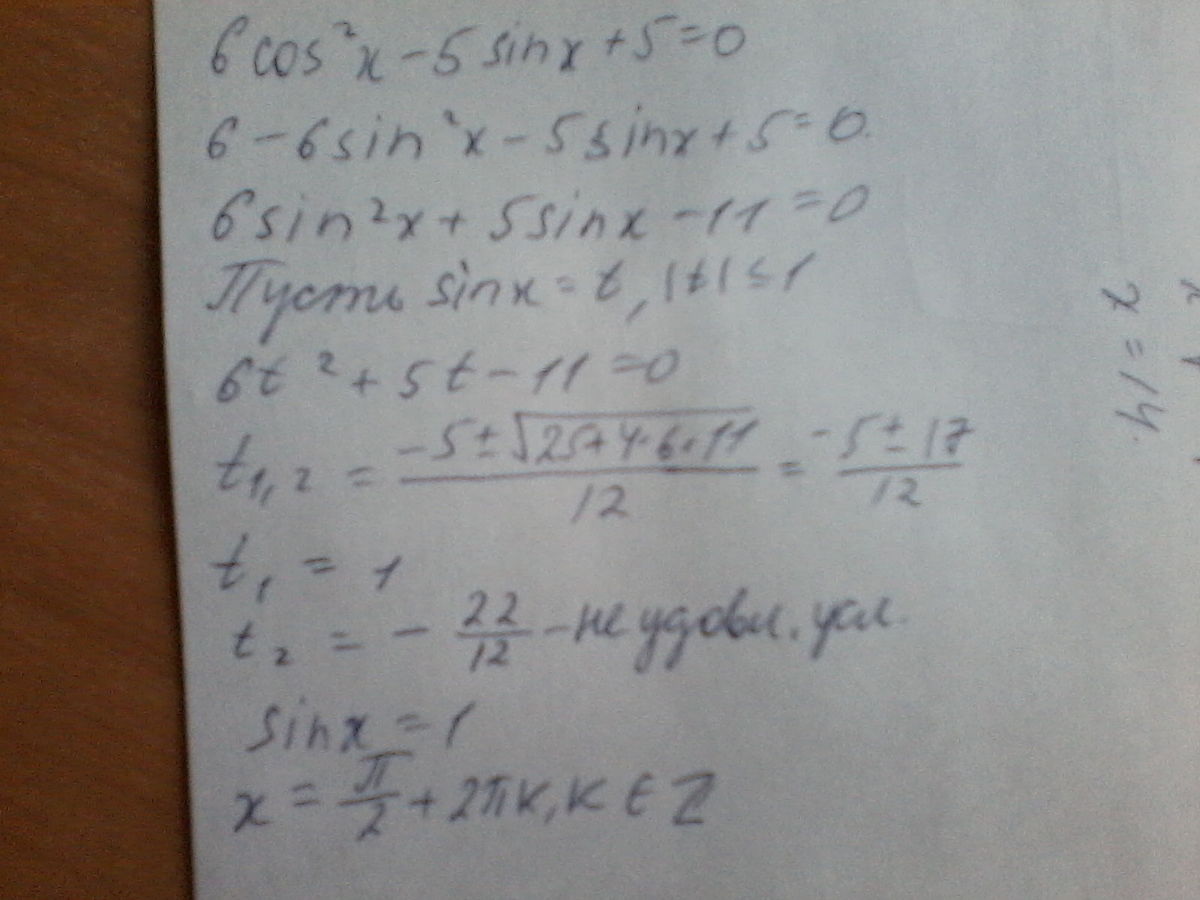 6cos²x - 5sinx + 5 = 0
6 - 6sin²x - 5sinx + 5 = 0.
6sin²x + 5sinx - 11 = 0
Пусть sinx = t, |t| ≤ 1
6t² + 5t - 11 = 0
t₁,₂ = (-5 ± √(25 + 4·6·11))/12 = (-5 ± 17)/12
t₁ = 1
t₂ = - 22/12 - не удовл. усл.
sinx = 1
x = π/2 + 2πk, k ∈ Z
x = 14.